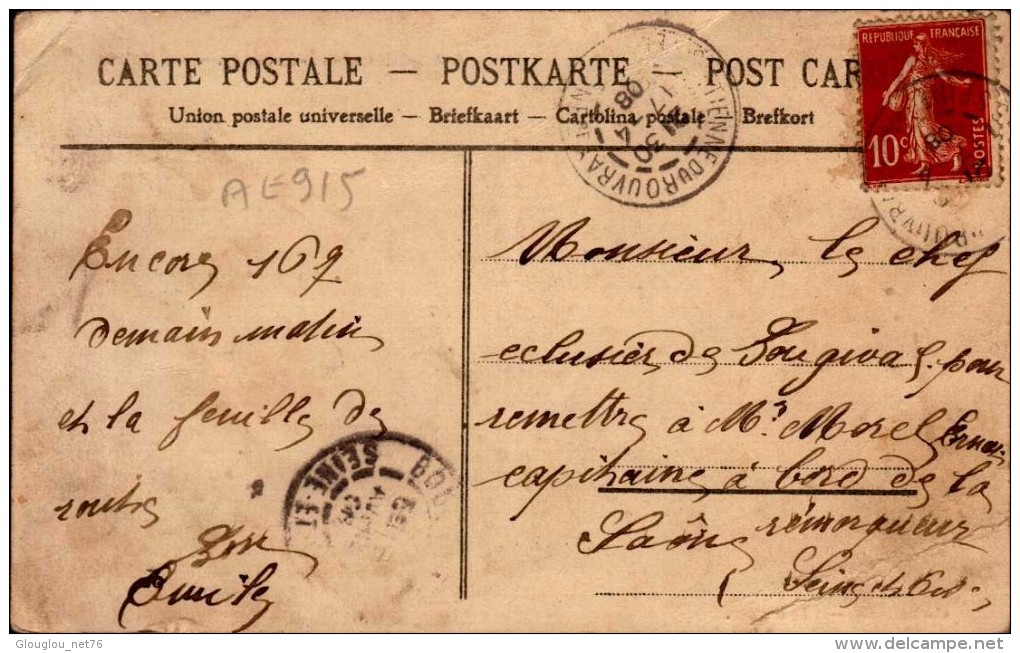 CARTE POSTALE — POSTKARTE — POST CAR
Union postale universelle — Briefkaart — Cartolina postale — Brefkort
REPUBLIQUE FRANÇAISE
10c
POSTES
TIENNE DU ROUVRAY
30
08
AE915
Encore 169
demain matin
et la feuille de
route
Emile
Monsieur le chef
eclusier de Bougival pour
remettre à Mr Morel Ernest
capitaine à bord de la
Saône remorqueur
Seine et Oise
BOU
SEINE-ET
Glouglou_net76
delcampe.net